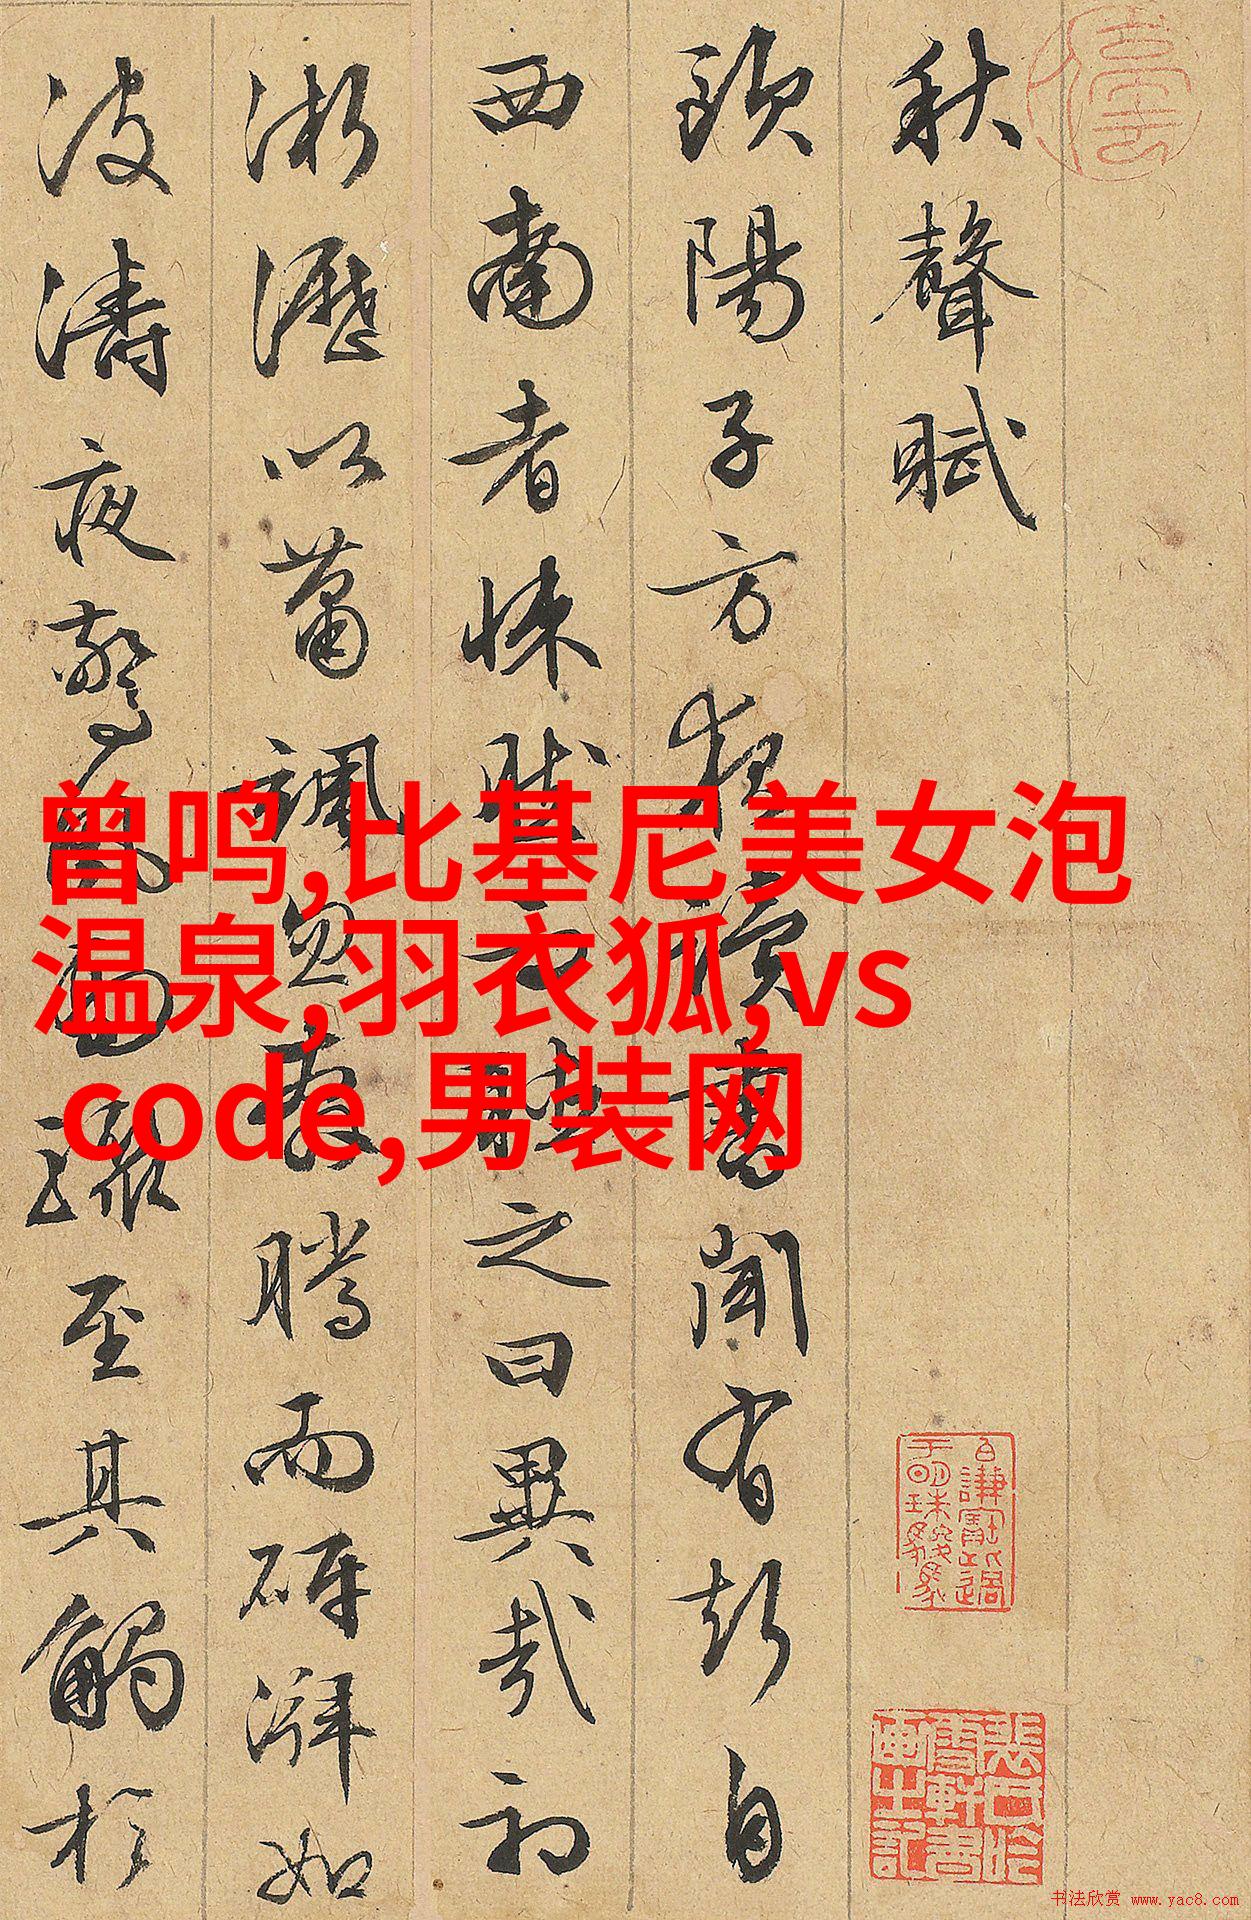 秋聲賦
歐陽子方夜讀書聞有聲自
西南者悚然而聽之曰異哉初
淅瀝以蕭颯忽奔騰而砰湃如
波濤夜驚風雨驟至其觸於
曾鸣,比基尼美女泡
温泉,羽衣狐,vs
code,男装网
书法欣赏 www.yac8.com